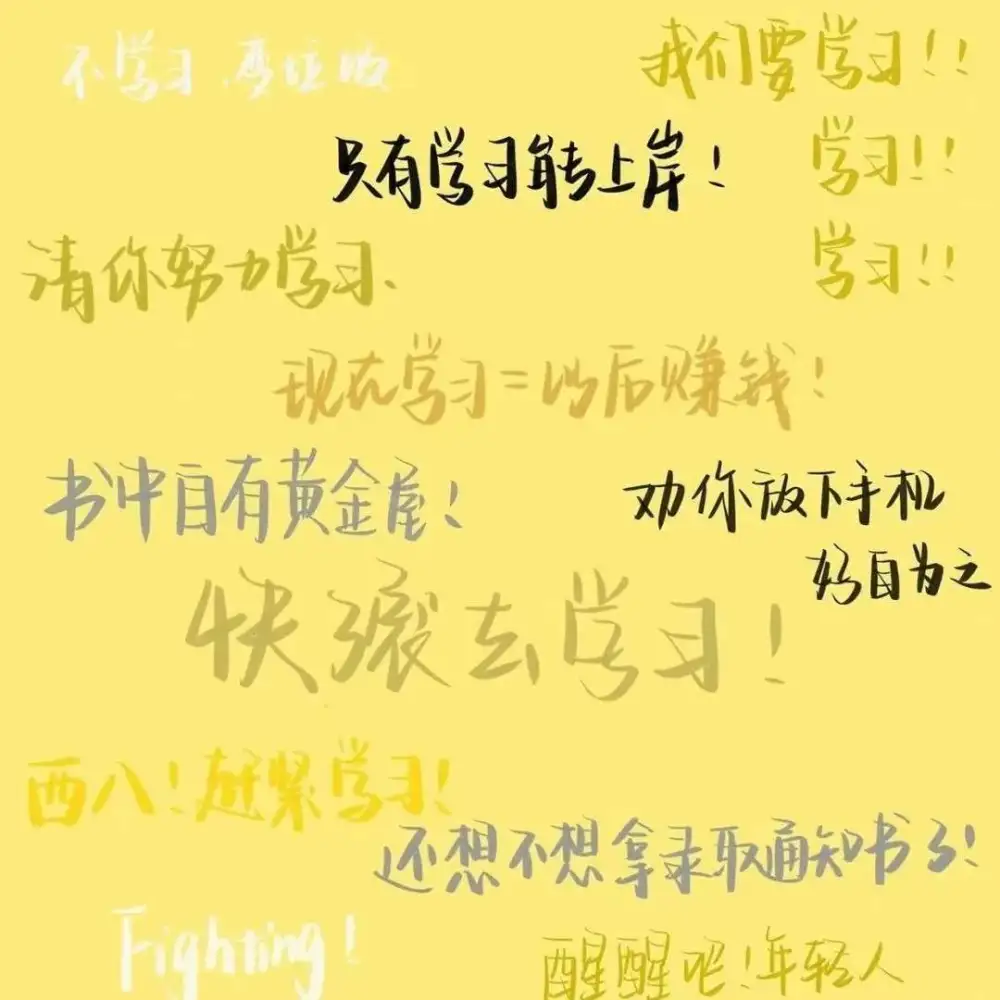 不学习,
我们要学习!!
只有学习能上岸!
学习!!
请你努力学习、
学习!!
现在学习=以后赚钱!
书中自有黄金屋!
劝你放下手机
好自为之
快滚去学习!
西八!赶紧学习!
还想不想拿录取通知书了!
Fighting!
醒醒吧!年轻人